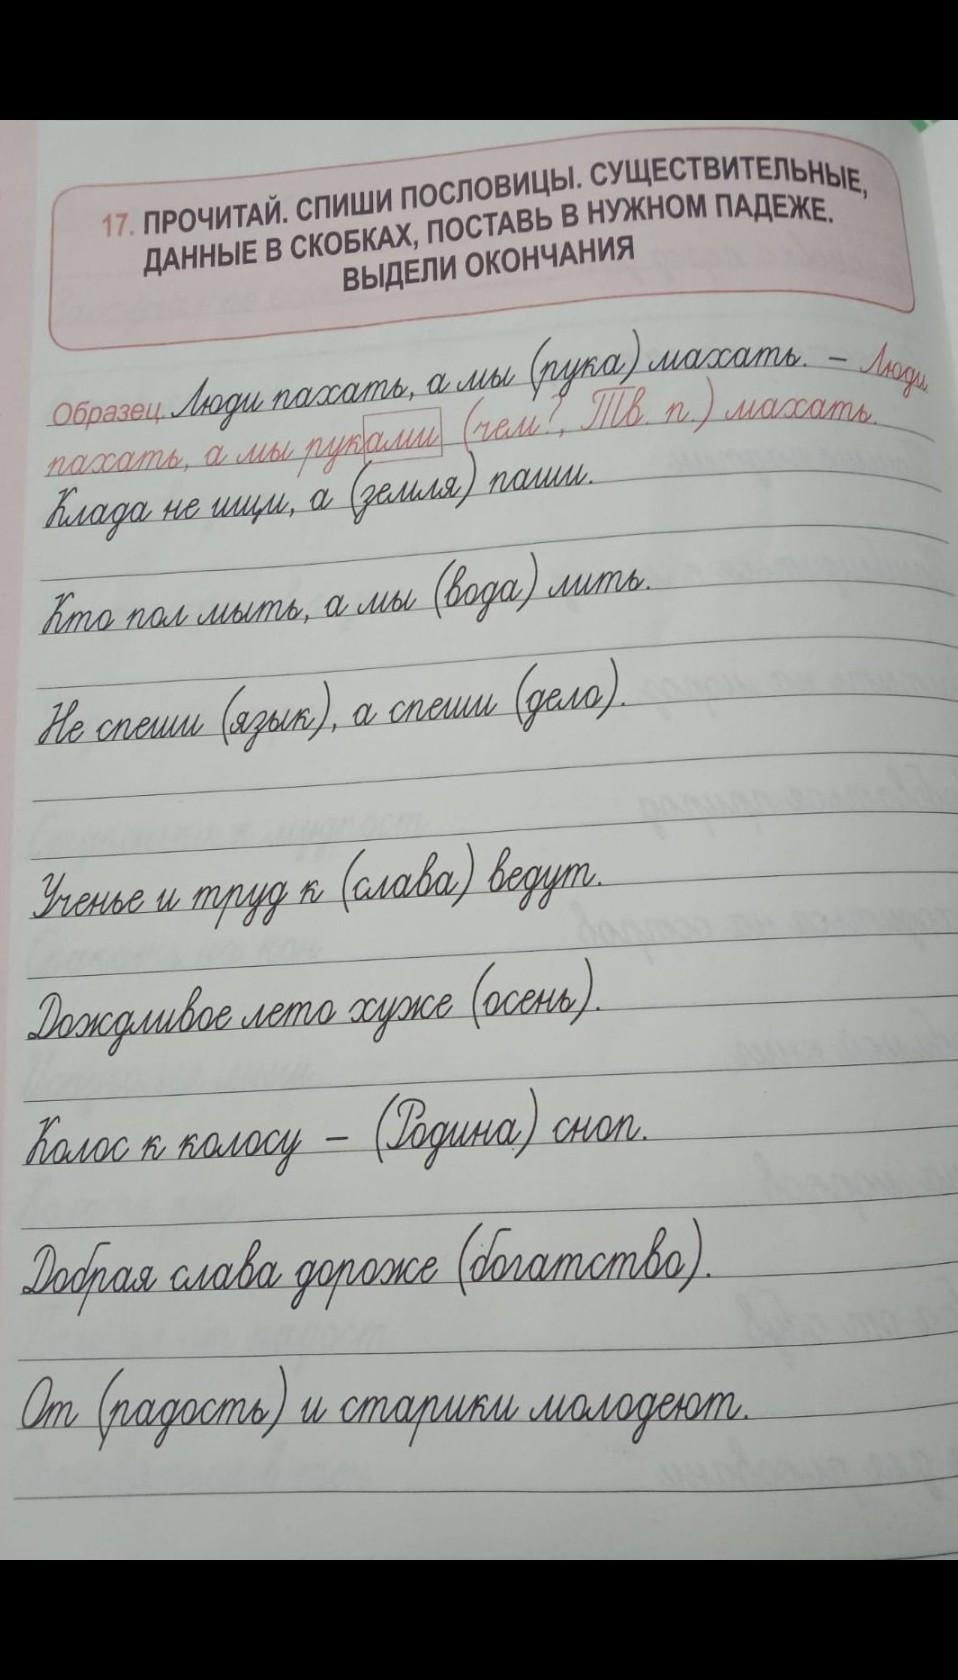 17. ПРОЧИТАЙ. СПИШИ ПОСЛОВИЦЫ. СУЩЕСТВИТЕЛЬНЫЕ,
ДАННЫЕ В СКОБКАХ, ПОСТАВЬ В НУЖНОМ ПАДЕЖЕ.
ВЫДЕЛИ ОКОНЧАНИЯ
Образец. Люди пахать, а мы (рука) махать. – Люди
пахать, а мы руками (чем?, Тв. п.) махать.
Клада не ищи, а (земля) паши.
Кто пол мыть, а мы (вода) лить.
Не спеши (язык), а спеши (дело).
Ученье и труд к (слава) ведут.
Дождливое лето хуже (осень).
Колос к колосу – (Родина) сноп.
Добрая слава дороже (богатство).
От (радость) и старики молодеют.